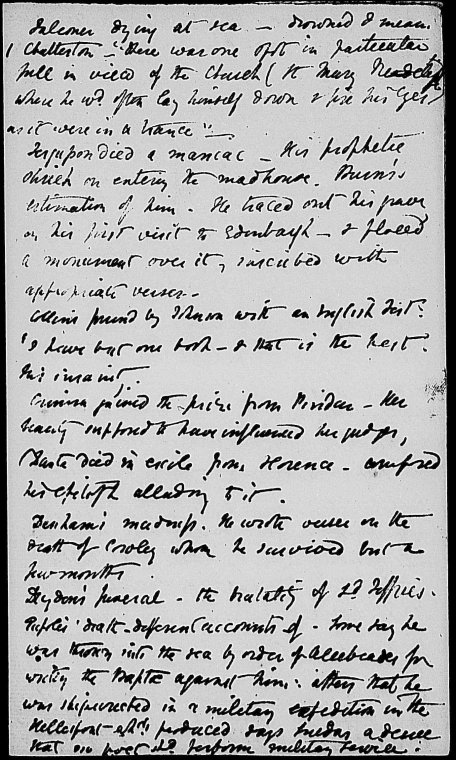 Falconer dying at sea – drowned I mean.
Chatterton – "there was one spot in particular
full in view of the Church (St Mary Redcliffe)
where he wd often lay himself down & fix his Eyes
as it were in a trance".
Fergusson died a maniac – His prophetic
shriek on entering the madhouse. Burns's
estimation of him. He traced out his grave
on his first visit to Edinburgh – & placed
a monument over it, inscribed with
appropriate verses –
Collins found by Johnson with an English Test.
"I have but one book – & that is the best".
His insanity.
Corinna gained the prize from Pindar – Her
beauty supposed to have influenced her judges,
Dante died in exile from Florence – composed
his Epitaph alluding to it.
Denham's madness. He wrote verses on the
death of Cowley whom he survived but a
few months
Dryden's funeral – the brutality of Ld Jeffries.
Eupolis' death – different accounts of – Some say he
was thrown into the sea by order of Alcibiades for
writing the Baptæ against him: others that he
was shipwrecked in a military expedition in the
Hellespont which produced says Suidas a decree
that no poet shd perform military service: